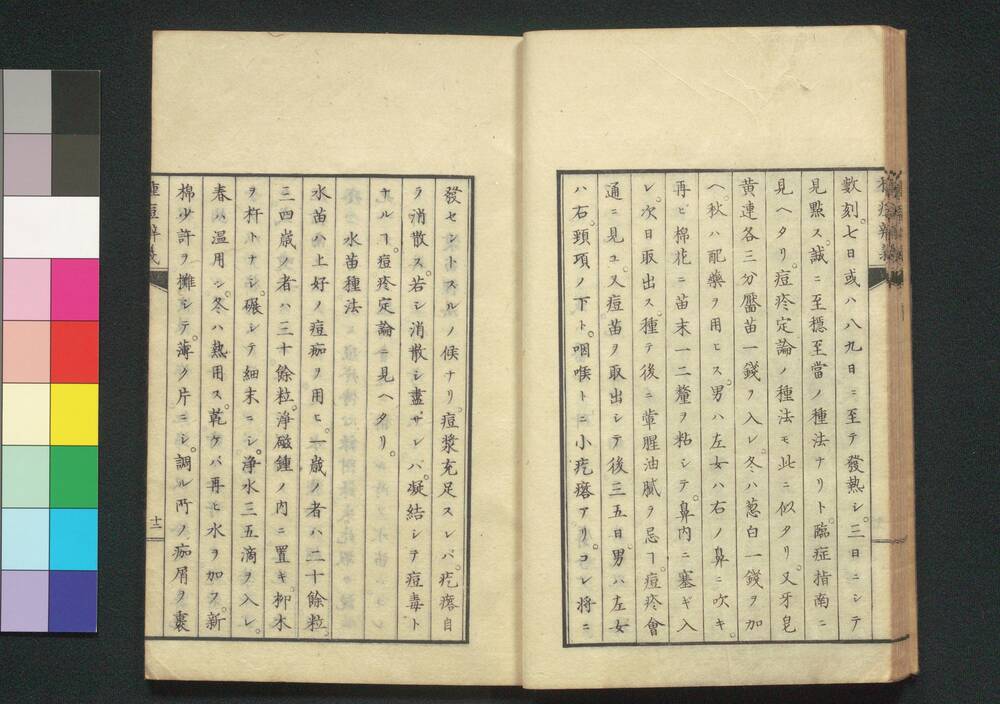 數刻。七日或ハ八九日ニ至テ發熱シ。三日ニシテ
見點ス。誠ニ至穩至當ノ種法ナリト。臨症指南ニ
見ヘタリ。痘疹定論ノ種法モ此ニ似タリ。又牙皂
黄連各三分靨苗一錢ヲ入レ。冬ハ葱白一錢ヲ加
ヘ。秋ハ配藥ヲ用ヒス。男ハ左女ハ右ノ鼻ニ吹キ。
再ビ棉花ニ苗末一二釐ヲ粘シテ。鼻内ニ塞ギ入
レ。次日取出ス。種テ後ニ葷腥油膩ヲ忌ヿ。痘疹會
通ニ見ユ。又痘苗ヲ取出シテ後三五日。男ハ左女
ハ右。頚項ノ下ト。咽喉トニ小疙瘩アリ。コレ將ニ
發セントスルノ候ナリ。痘漿充足スレバ。疙瘩自
ラ消散ス。若シ消散シ盡サレバ。凝結シテ痘毒ト
ナルヿ。痘疹定論ニ見ヘタリ。
水苗種法
水苗ハ上好ノ痘痂ヲ用ヒ。一歳ノ者ハ二十餘粒。
三四歳ノ者ハ三十餘粒。淨磁鍾ノ内ニ置キ。柳木
ヲ杵トナシ。碾シテ細末ニシ。淨水三五滴ヲ入レ。
春ハ温用シ。冬ハ熱用ス。乾ケバ再ヒ水ヲ加フ。新
棉少許ヲ攤シテ。薄ク片ニシ。調ル所ノ痂屑ヲ裹
種痘辨義
十二